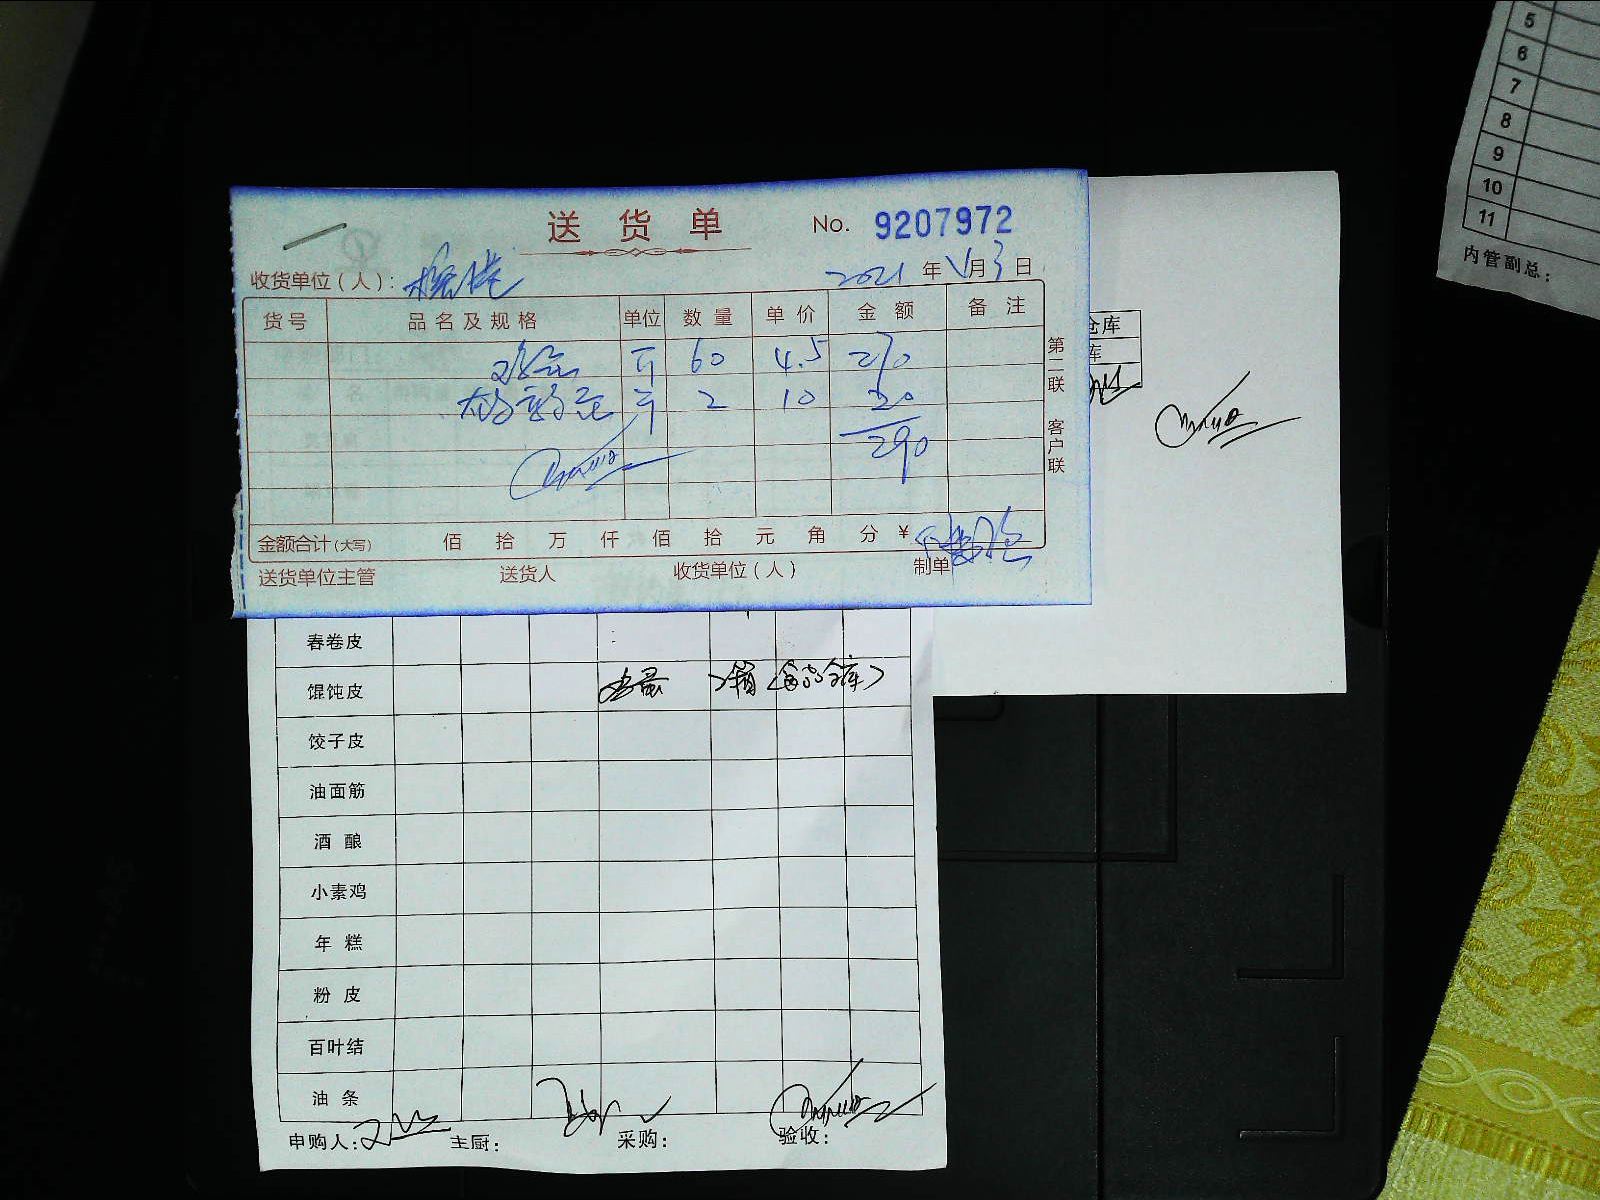 送货单 No. 9207972
收货单位(人):
2021年1月3日
货号 品名及规格 单位 数量 单价 金额 备注
斤 60 4.5 270
斤 2 10 20
290
第二联 客户联
金额合计(大写) 佰 拾 万 仟 佰 拾 元 角 分 ¥
送货单位主管 送货人 收货单位(人) 制单
仓库
库
春卷皮
馄饨皮 鸡蛋 1箱
饺子皮
油面筋
酒酿
小素鸡
年糕
粉皮
百叶结
油条
申购人: 主厨: 采购: 验收:
5
6
7
8
9
10
11
内管副总: